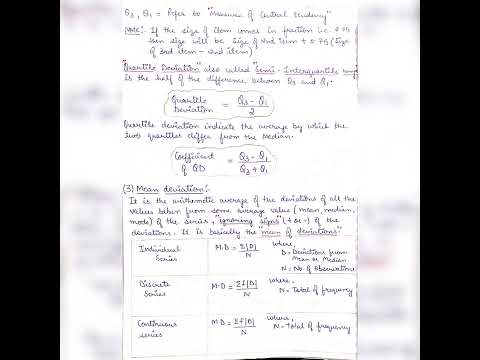 Q3, Q1 = Refer to "Measure of Central Tendency"
Note:- If the size of item comes in fraction i.e.
then size will be size of 2nd item + 0.75 (size
of 3rd item - 2nd item)
"Quartile Deviation" also called "Semi-Interquartile
is the half of the difference between Q3 and Q1.
Quartile Deviation = Q3 - Q1 / 2
Quartile deviation indicate the average by which the
two quartiles differ from the Median.
Coefficient of QD = Q3 - Q1 / Q3 + Q1
(3) Mean deviation:-
It is the arithmetic average of the deviations of all the
values taken from some average value (mean, median,
mode) of the series, "ignoring signs" (+ or -) of the
deviations. It is basically the "mean of deviations"
Individual Series M.D = Σ|D| / N where, D = Deviations from Mean or Median N = No. of observations
Discrete Series M.D = Σf|D| / N where, N = Total of frequency
Continuous series M.D = Σf|D| / N where, N = Total of frequency